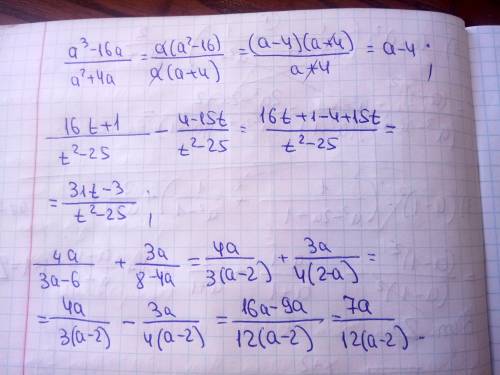 (a³-16a)/(a²+4a) = (a(a²-16))/(a(a+4)) = ((a-4)(a+4))/(a+4) = a-4 ;
(16t+1)/(t²-25) - (4-15t)/(t²-25) = (16t+1-4+15t)/(t²-25) =
= (31t-3)/(t²-25) ;
4a/(3a-6) + 3a/(8-4a) = 4a/(3(a-2)) + 3a/(4(2-a)) =
= 4a/(3(a-2)) - 3a/(4(a-2)) = (16a-9a)/(12(a-2)) = 7a/(12(a-2)) .